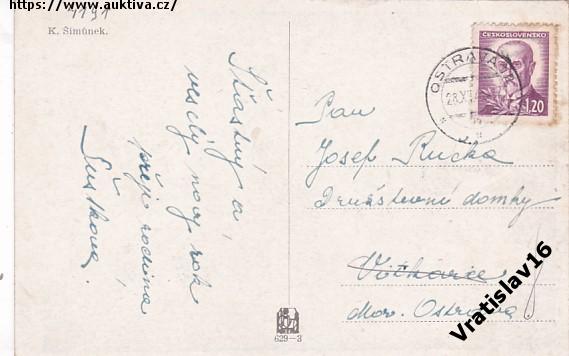 https://www.auktiva.cz/
1191
K. Šimůnek.
Šťastný a
veselý nový rok
přeje rodina
ČESKOSLOVENSKO
1.20
OSTRAVA
28.XII
Pan
Josef Rucka
Družstevní domky
Vítkovice
Mor. Ostrava
629-3
Vratislav16